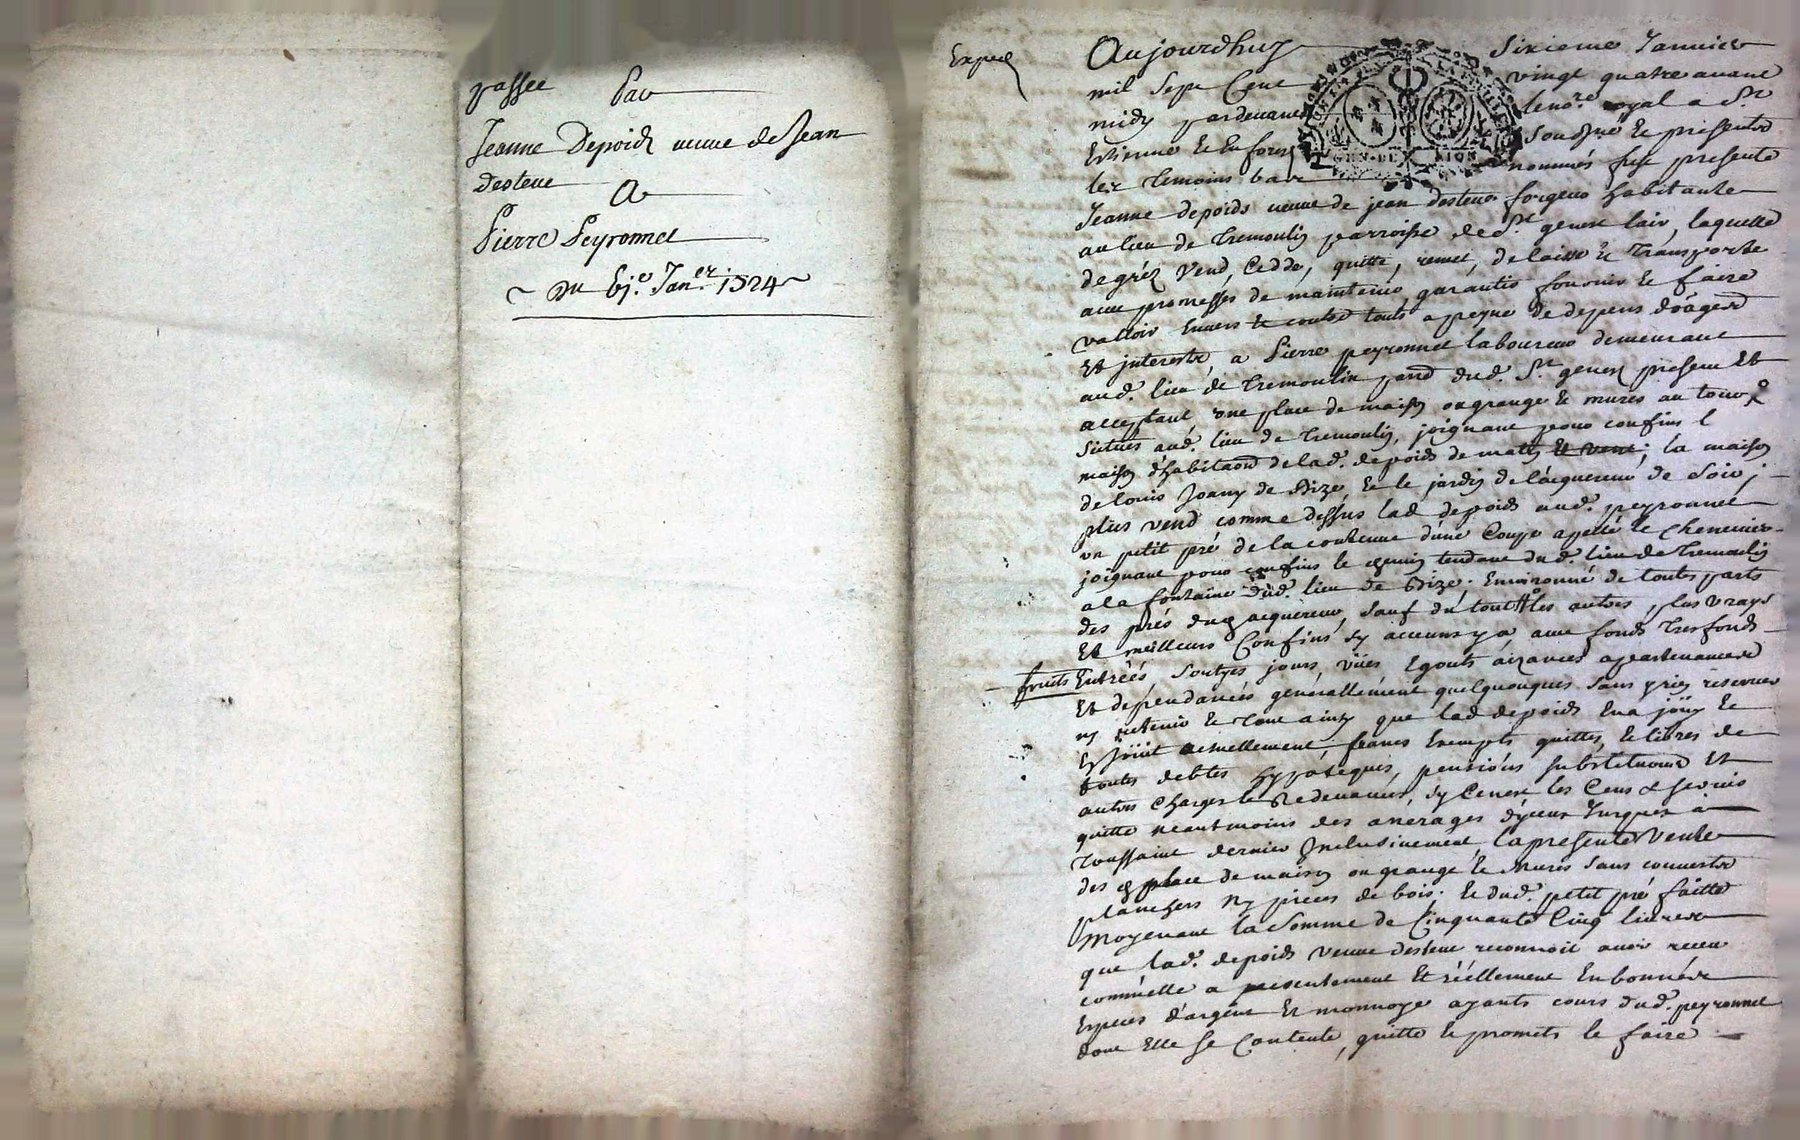 passée
Par
Jeanne Depoids veuve de Jean
desteve
A
Pierre Peyronnet
~ Du 6je. Janer. 1724 ~
Exped
Aujourdhuy sixieme Janvier
mil sept Cent vingt quatre avant
midy pardevant le nore. royal a St.
Estienne de en forest soussigné & presents
les temoins bas nommés fust presente
Jeanne depoids veuve de jean desteve forgeur habitante
au lieu de Tremoulin parroisse de St. genest lair, laquelle
de gréz Vend, Cedde, quitte, remet, delaisse & transporte
avec promesses de maintenir garantir fournir & faire
valloir Envers & contre touts a peyne de depens domages
Et interests, a Pierre peyronnet laboureur demeurant
aud. lieu de Tremoulin parr. dud. St. genest present Et
acceptant, une place de maison ou grange & mures au tour
situés aud. lieu de Tremoulin, joignant pour confins l
maison d'habitaon de lad. depoids de matin & vent; la maison
de louis Joany de Bize & le jardin de l'acquereur de Soir;
plus vend comme dessus lad depoids aud. peyronnet
un petit pré de la contenue d'une Coupe apellé le Chenevier
joignant pour confins le chemin tendant dud. lieu de Tremoulin
a la fontaine dud. lieu de Bize. Environné de touts parts
des prés dud acquereur, sauf du tout les autres plus vrays
Et meilleurs Confins sy aucuns y a, avec fonds Tresfonds
fruits Entrées, Sortyes jours, vües Egouts aizances apartenances
Et dépendances generallement quelquonques sans y rien reserver
ny retenir & tout ainsy que lad depoids En a jouy &
Es Joüit actuellement, francs Exempts quittes, & libres de
toutes debtes hypoteques, pensions substitutions Et
autres Charges & Redevances, sy Cenest les Cens & servis
quitte neantmoins des arrerages d'yceux Jusques à
Toussaint dernier Inclusivement, La presente Vente
des d place de maison ou grange & Mures sans couverts
planchers Ny pieces de bois; & dud. petit pré faitte
Moyenant la Somme de Cinquante Cinq livres
que lad. depoids veuve desteve reconnoit avoir receu
comme elle a presentement Et réellement En bonnes
Especes d'argent Et monnoye ayants cours dud. peyronnet
dont Elle se Contente, quitte & promets le faire